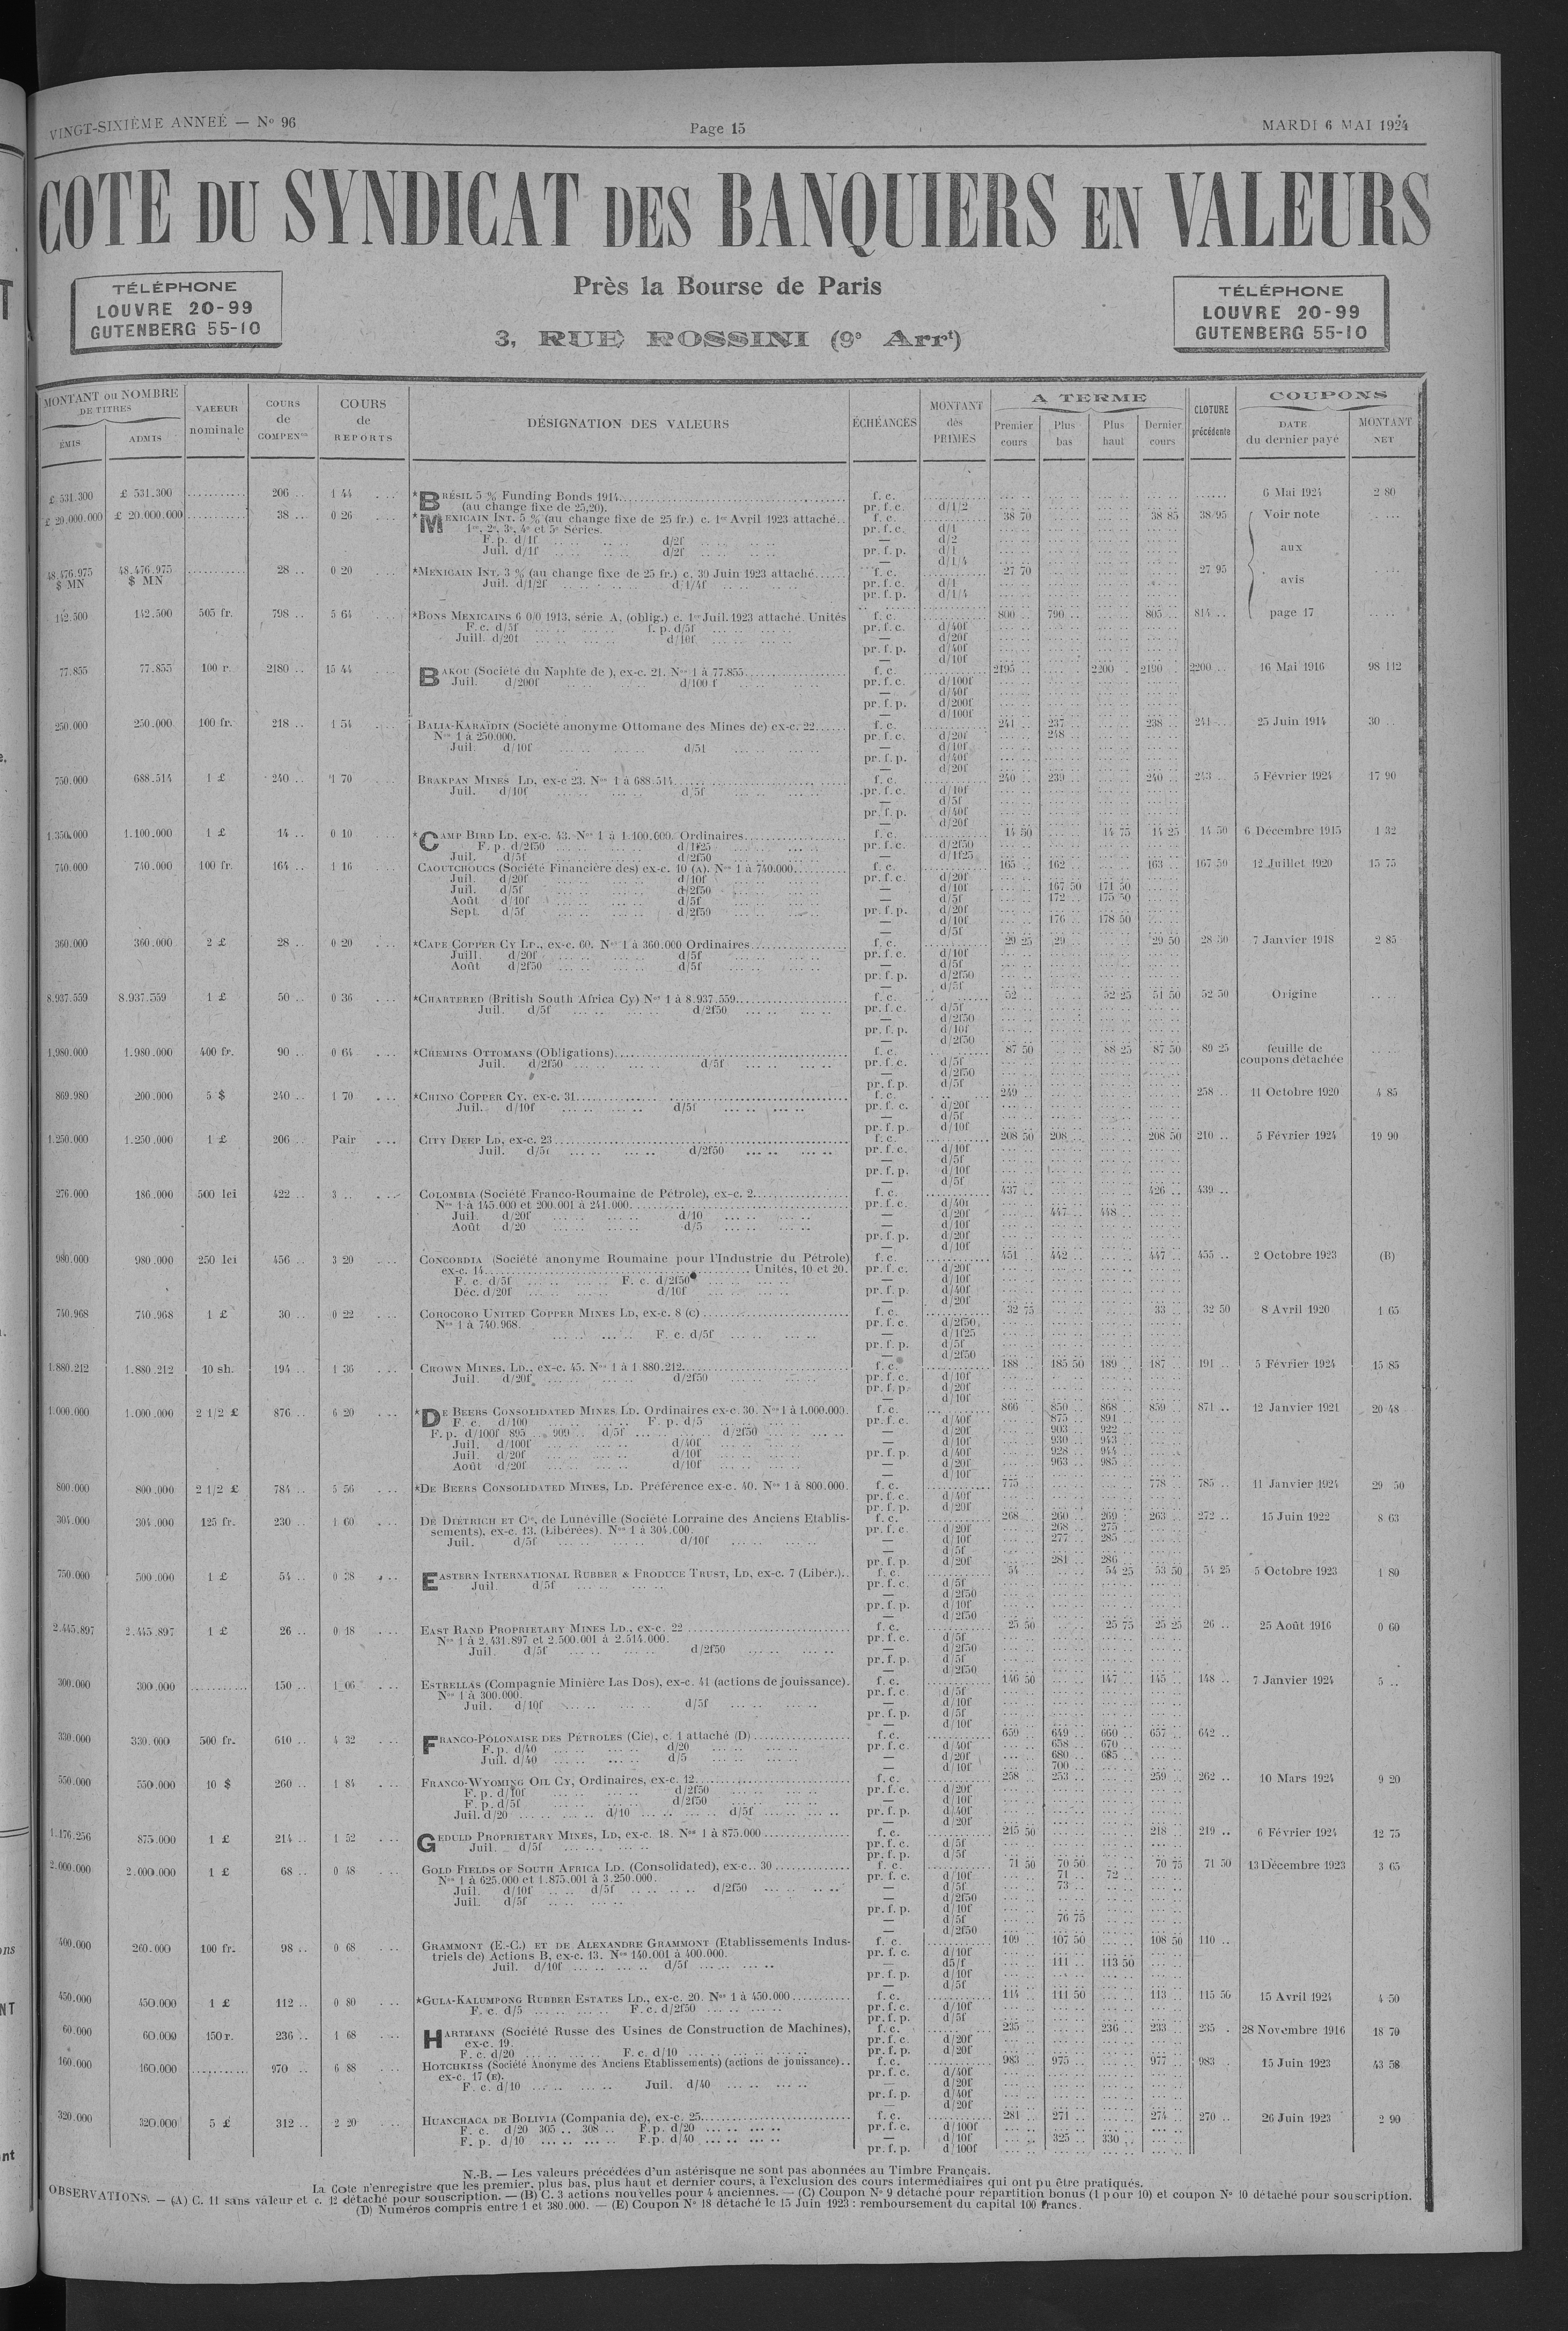 VINGT-SIXIÈME ANNEÉ — Nº 96
Page 15
MARDI 6 MAI 1924
COTE DU SYNDICAT DES BANQUIERS EN VALEURS
TÉLÉPHONE
LOUVRE 20-99
GUTENBERG 55-10
Près la Bourse de Paris
3, RUE ROSSINI (9e Arrt)
TÉLÉPHONE
LOUVRE 20-99
GUTENBERG 55-10
MONTANT ou NOMBRE DE TITRES
ÉMIS
ADMIS
VALEUR nominale
COURS de COMPENon
COURS de REPORTS
DÉSIGNATION DES VALEURS
ÉCHÉANCES
MONTANT des PRIMES
A TERME
Premier cours
Plus bas
Plus haut
Dernier cours
CLOTURE précédente
COUPONS
DATE du dernier payé
MONTANT NET
£ 531.300 £ 531.300 .......... 206 .. 1 44 *BRÉSIL 5 % Funding Bonds 1914 f. c. 6 Mai 1924 2 80
(au change fixe de 25,20). pr. f. c. d/1/2
£ 20.000.000 £ 20.000.000 .......... 38 .. 0 26 *MEXICAIN INT. 5 % (au change fixe de 25 fr.) c. 1er Avril 1923 attaché.. f. c. 38 70 38 85 38 95 Voir note
1re, 2e, 3e, 4e et 5e Séries. pr. f. c. d/1
F. p. d/1f d/2f — d/2
Juil. d/1f d/2f pr. f. p. d/1
— d/1/4
aux
48.476.975 $ MN 48.476.975 $ MN .......... 28 .. 0 20 *MEXICAIN INT. 3 % (au change fixe de 25 fr.) c. 30 Juin 1923 attaché f. c. 27 70 27 95 avis
Juil. d/1/2f d/1/4f pr. f. c. d/1
pr. f. p. d/1/4
142.500 142.500 505 fr. 798 .. 5 64 *BONS MEXICAINS 6 0/0 1913, série A, (oblig.) c. 1er Juil. 1923 attaché Unités f. c. 800 .. 790 .. 805 .. 814 .. page 17
F. c. d/5f f. p. d/5f pr. f. c. d/40f
Juill. d/20f d/10f — d/20f
pr. f. p. d/40f
— d/10f
77.855 77.855 100 r. 2180 .. 15 44 BAKOU (Société du Naphte de ), ex-c. 21. Nos 1 à 77.855 f. c. 2195 .. 2200 .. 2190 .. 2200 .. 16 Mai 1916 98 112
Juil. d/200f d/100 f pr. f. c. d/100f
— d/40f
pr. f. p. d/200f
— d/100f
250.000 250.000 100 fr. 218 .. 1 54 BALIA-KARAÏDIN (Société anonyme Ottomane des Mines de) ex-c. 22 f. c. 241 .. 237 .. 238 .. 241 .. 25 Juin 1914 30 ..
Nos 1 à 250.000. pr. f. c. d/20f 248 ..
Juil. d/10f d/5f — d/10f
pr. f. p. d/40f
— d/20f
750.000 688.514 1 £ 240 .. 1 70 BRAKPAN MINES LD, ex-c 23. Nos 1 à 688.514 f. c. 240 .. 239 .. 240 .. 243 .. 5 Février 1924 17 90
Juil. d/10f d/5f pr. f. c. d/10f
— d/5f
pr. f. p. d/40f
— d/20f
1.350.000 1.100.000 1 £ 14 .. 0 10 *CAMP BIRD LD, ex-c. 43. Nos 1 à 1.100.000. Ordinaires f. c. 14 50 14 75 14 25 14 50 6 Décembre 1915 1 32
F. p. d/2f50 d/1f25 pr. f. c. d/2f50
Juil. d/5f d/2f50 — d/1f25
740.000 740.000 100 fr. 164 .. 1 16 CAOUTCHOUCS (Société Financière des) ex-c. 10 (A). Nos 1 à 740.000 f. c. 165 .. 162 .. 163 .. 167 50 12 Juillet 1920 15 75
Juil. d/20f d/10f pr. f. c. d/20f
Juil. d/5f d/2f50 — d/10f 167 50 171 50
Août d/10f d/5f — d/5f 172 .. 175 50
Sept. d/5f d/2f50 pr. f. p. d/20f
— d/10f 176 .. 178 50
— d/5f
360.000 360.000 2 £ 28 .. 0 20 *CAPE COPPER CY LD., ex-c. 60. Nos 1 à 360.000 Ordinaires f. c. 29 25 29 .. 29 50 28 50 7 Janvier 1918 2 85
Juill. d/20f d/5f pr. f. c. d/10f
Août d/2f50 d/5f — d/5f
pr. f. p. d/2f50
— d/5f
8.937.559 8.937.559 1 £ 50 .. 0 36 *CHARTERED (British South Africa Cy) Nos 1 à 8.937.559 f. c. 52 .. 52 25 51 50 52 50 Origine
Juil. d/5f d/2f50 pr. f. c. d/5f
— d/2f50
pr. f. p. d/10f
— d/2f50
1.980.000 1.980.000 400 fr. 90 .. 0 64 *CHEMINS OTTOMANS (Obligations) f. c. 87 50 88 25 87 50 89 25 feuille de coupons détachée
Juil. d/2f50 d/5f pr. f. c. d/5f
— d/2f50
pr. f. p. d/5f
869.980 200.000 5 $ 240 .. 1 70 *CHINO COPPER CY, ex-c. 31 f. c. 249 .. 258 .. 11 Octobre 1920 4 85
Juil. d/10f d/5f pr. f. c. d/20f
— d/5f
pr. f. p. d/10f
1.250.000 1.250.000 1 £ 206 .. Pair CITY DEEP LD, ex-c. 23 f. c. 208 50 208 .. 208 50 210 .. 5 Février 1924 19 90
Juil. d/5f d/2f50 pr. f. c. d/10f
— d/5f
pr. f. p. d/10f
— d/5f
276.000 186.000 500 lei 422 .. 3 .. COLOMBIA (Société Franco-Roumaine de Pétrole), ex-c. 2 f. c. 437 .. 426 .. 439 ..
Nos 1 à 145.000 et 200.001 à 241.000 pr. f. c. d/40f
Juil. d/20f d/10 — d/20f 447 .. 448 ..
Août d/20 d/5 — d/10f
pr. f. p. d/20f
— d/10f
980.000 980.000 250 lei 456 .. 3 20 CONCORDIA (Société anonyme Roumaine pour l'Industrie du Pétrole) f. c. 451 .. 442 .. 447 .. 455 .. 2 Octobre 1923 (B)
ex-c. 14 Unités, 10 et 20. pr. f. c. d/20f
F. c. d/5f F. c. d/2f50 — d/10f
Déc. d/20f d/10f pr. f. p. d/40f
— d/20f
740.968 740.968 1 £ 30 .. 0 22 COROCORO UNITED COPPER MINES LD, ex-c. 8 (C) f. c. 32 75 33 .. 32 50 8 Avril 1920 1 65
Nos 1 à 740.968. pr. f. c. d/2f50
F. c. d/5f — d/1f25
pr. f. p. d/5f
— d/2f50
1.880.212 1.880.212 10 sh. 194 .. 1 36 CROWN MINES, LD., ex-c. 45. Nos 1 à 1.880.212 f. c. 188 .. 185 50 189 .. 187 .. 191 .. 5 Février 1924 15 85
Juil. d/20f d/2f50 pr. f. c. d/10f
pr. f. p. d/20f
— d/10f
1.000.000 1.000.000 2 1/2 £ 876 .. 6 20 *DE BEERS CONSOLIDATED MINES LD. Ordinaires ex-c. 30. Nos 1 à 1.000.000. f. c. 866 .. 850 .. 868 .. 859 .. 871 .. 12 Janvier 1921 20 48
F. c. d/100 F. p. d/5 pr. f. c. d/40f 875 .. 891 ..
F. p. d/100f 895 .. 909 .. d/5f d/2f50 — d/20f 903 .. 922 ..
Juil. d/100f d/40f — d/10f 930 .. 943 ..
Juil. d/20f d/10f pr. f. p. d/40f 928 .. 944 ..
Août d/20f d/10f — d/20f 963 .. 985 ..
— d/10f
800.000 800.000 2 1/2 £ 784 .. 5 56 *DE BEERS CONSOLIDATED MINES, LD. Préférence ex-c. 40. Nos 1 à 800.000. f. c. 775 .. 778 .. 785 .. 11 Janvier 1924 29 50
pr. f. c. d/40f
pr. f. p. d/20f
304.000 304.000 125 fr. 230 .. 1 60 DE DIÉTRICH ET Cie, de Lunéville (Société Lorraine des Anciens Etablis- f. c. 268 .. 260 .. 269 .. 263 .. 272 .. 15 Juin 1922 8 63
sements), ex-c. 13. (Libérées). Nos 1 à 304.000. pr. f. c. d/20f 268 .. 275 ..
Juil. d/5f d/10f — d/10f 277 .. 285 ..
— d/5f
pr. f. p. d/20f 281 .. 286 ..
750.000 500.000 1 £ 54 .. 0 38 EASTERN INTERNATIONAL RUBBER & PRODUCE TRUST, LD, ex-c. 7 (Libér.).. f. c. 54 .. 54 25 53 50 54 25 5 Octobre 1923 1 80
Juil. d/5f pr. f. c. d/5f
— d/2f50
pr. f. p. d/10f
— d/2f50
2.445.897 2.445.897 1 £ 26 .. 0 18 EAST RAND PROPRIETARY MINES LD., ex-c. 22 f. c. 25 50 25 75 25 25 26 .. 25 Août 1916 0 60
Nos 1 à 2.431.897 et 2.500.001 à 2.514.000. pr. f. c. d/5f
Juil. d/5f d/2f50 — d/2f50
pr. f. p. d/5f
— d/2f50
300.000 300.000 .......... 150 .. 1 06 ESTRELLAS (Compagnie Minière Las Dos), ex-c. 41 (actions de jouissance). f. c. 146 50 147 .. 145 .. 148 .. 7 Janvier 1924 5 ..
Nos 1 à 300.000. pr. f. c. d/5f
Juil. d/10f d/5f — d/10f
pr. f. p. d/5f
— d/10f
330.000 330.000 500 fr. 610 .. 4 32 FRANCO-POLONAISE DES PÉTROLES (Cie), c. 1 attaché (D) f. c. 659 .. 649 .. 660 .. 657 .. 642 ..
F. p. d/40 d/20 pr. f. c. d/40f 658 .. 670 ..
Juil. d/40 d/5 — d/20f 680 .. 685 ..
— d/10f 700 ..
550.000 550.000 10 $ 260 .. 1 84 FRANCO-WYOMING OIL CY, Ordinaires, ex-c. 12 f. c. 258 .. 253 .. 259 .. 262 .. 10 Mars 1924 9 20
F. p. d/10f d/2f50 pr. f. c. d/20f
F. p. d/5f d/2f50 — d/10f
Juil. d/20 d/10 d/5f pr. f. p. d/40f
— d/20f
1.176.256 875.000 1 £ 214 .. 1 52 GEDULD PROPRIETARY MINES, LD, ex-c. 18. Nos 1 à 875.000 f. c. 215 50 218 .. 219 .. 6 Février 1924 12 75
Juil. d/5f pr. f. c. d/5f
pr. f. p. d/5f
2.000.000 2.000.000 1 £ 68 .. 0 48 GOLD FIELDS OF SOUTH AFRICA LD. (Consolidated), ex-c.. 30 f. c. 71 50 70 50 70 75 71 50 13 Décembre 1923 3 65
Nos 1 à 625.000 et 1.875.001 à 3.250.000. pr. f. c. d/10f 71 .. 72 ..
Juil. d/10f d/5f d/2f50 — d/5f 73 ..
Juil. d/5f — d/2f50
pr. f. p. d/10f
— d/5f 76 75
— d/2f50
400.000 260.000 100 fr. 98 .. 0 68 GRAMMONT (E.-C.) ET DE ALEXANDRE GRAMMONT (Etablissements Indus- f. c. 109 .. 107 50 108 50 110 ..
triels de) Actions B, ex-c. 13. Nos 140.001 à 400.000. pr. f. c. d/10f
Juil. d/10f d/5f — d5/f 111 .. 113 50
pr. f. p. d/10f
— d/5f
450.000 450.000 1 £ 112 .. 0 80 *GULA-KALUMPONG RUBBER ESTATES LD., ex-c. 20. Nos 1 à 450.000 f. c. 114 .. 111 50 113 .. 115 50 15 Avril 1924 4 50
F. c. d/5 F. c. d/2f50 pr. f. c. d/10f
pr. f. p. d/5f
60.000 60.000 150 r. 236 .. 1 68 HARTMANN (Société Russe des Usines de Construction de Machines), f. c. 235 .. 236 .. 233 .. 235 . 28 Novembre 1916 18 70
ex-c. 19. pr. f. c. d/20f
F. c. d/20 F. c. d/10 pr. f. p. d/20f
160.000 160.000 .......... 970 .. 6 88 HOTCHKISS (Société Anonyme des Anciens Etablissements) (actions de jouissance).. f. c. 983 .. 975 .. 977 .. 983 .. 15 Juin 1923 43 58
ex-c. 17 (E). pr. f. c. d/40f
F. c. d/10 Juil. d/40 — d/20f
pr. f. p. d/40f
— d/20f
320.000 320.000 5 £ 312 .. 2 20 HUANCHACA DE BOLIVIA (Compania de), ex-c. 25 f. c. 281 .. 271 .. 274 .. 270 .. 26 Juin 1923 2 90
F. c. d/20 305 .. 308 .. F.p. d/20 pr. f. c. d/100f
F. p. d/10 F.p. d/40 — d/10f 325 .. 330 ..
pr. f. p. d/100f
N.-B. — Les valeurs précédées d'un astérisque ne sont pas abonnées au Timbre Français.
La Cote n'enregistre que les premier, plus bas, plus haut et dernier cours, à l'exclusion des cours intermédiaires qui ont pu être pratiqués.
OBSERVATIONS. — (A) C. 11 sans valeur et c. 12 détaché pour souscription. — (B) C. 3 actions nouvelles pour 4 anciennes. — (C) Coupon No 9 détaché pour répartition bonus (1 pour 10) et coupon No 10 détaché pour souscription.
(D) Numéros compris entre 1 et 380.000. — (E) Coupon No 18 détaché le 15 Juin 1923 : remboursement du capital 100 Francs.